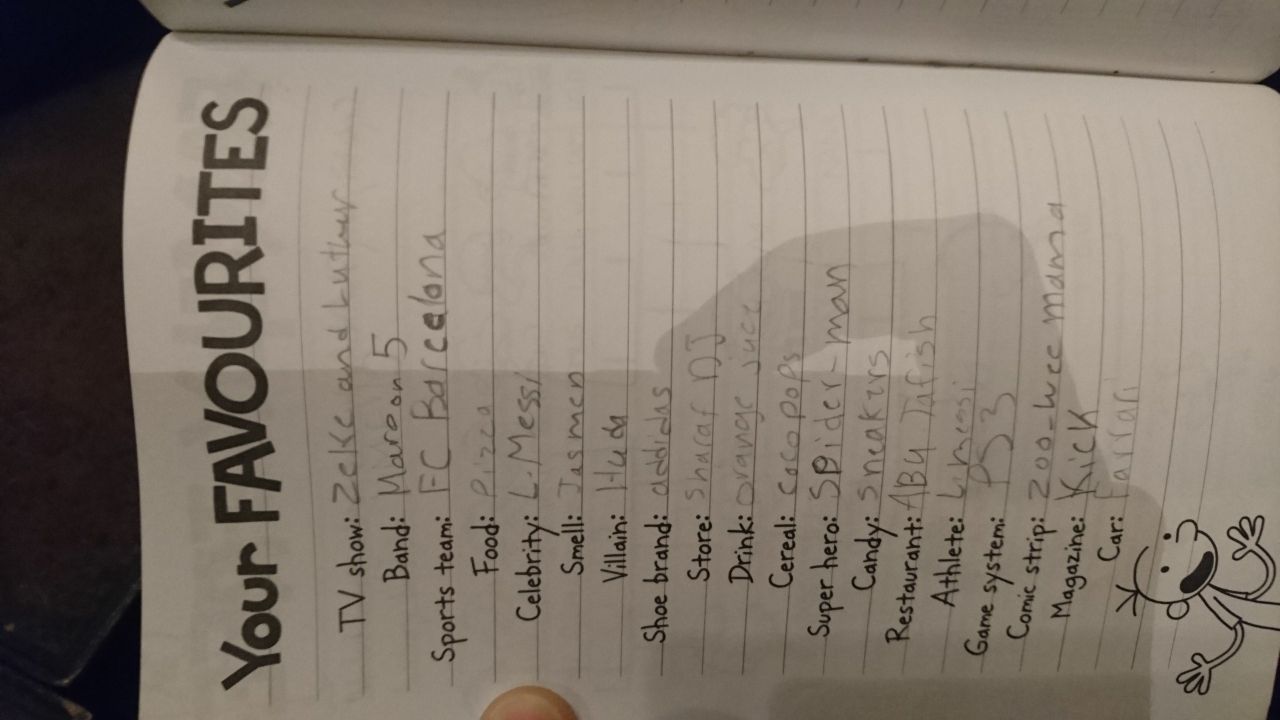 Your FAVOURITES
TV show: Zeke and Luther
Band: Maroon 5
Sports team: FC Barcelona
Food: Pizza
Celebrity: L.Messi
Smell: Jasmen
Villain: Huda
Shoe brand: addidas
Store: Sharaf DJ
Drink: orange juce
Cereal: coco pops
Super hero: Spider-man
Candy: Sneakers
Restaurant: ABU
Athlete: L.messi
Game system: PS3
Comic strip: Zoo-wee mama
Magazine: Kick
Car: Farari